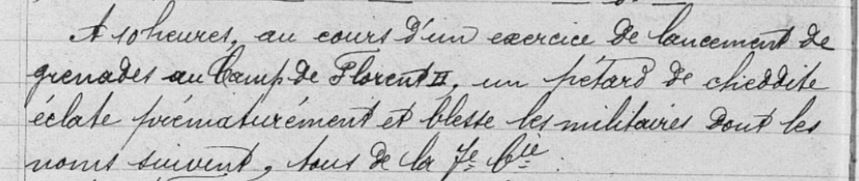 A 10 heures, au cours d'un exercice de lancement de
grenades au Camp de Florent II, un pétard de cheddite
éclate prématurément et blesse les militaires dont les
noms suivent, tous de la 7e Cie :